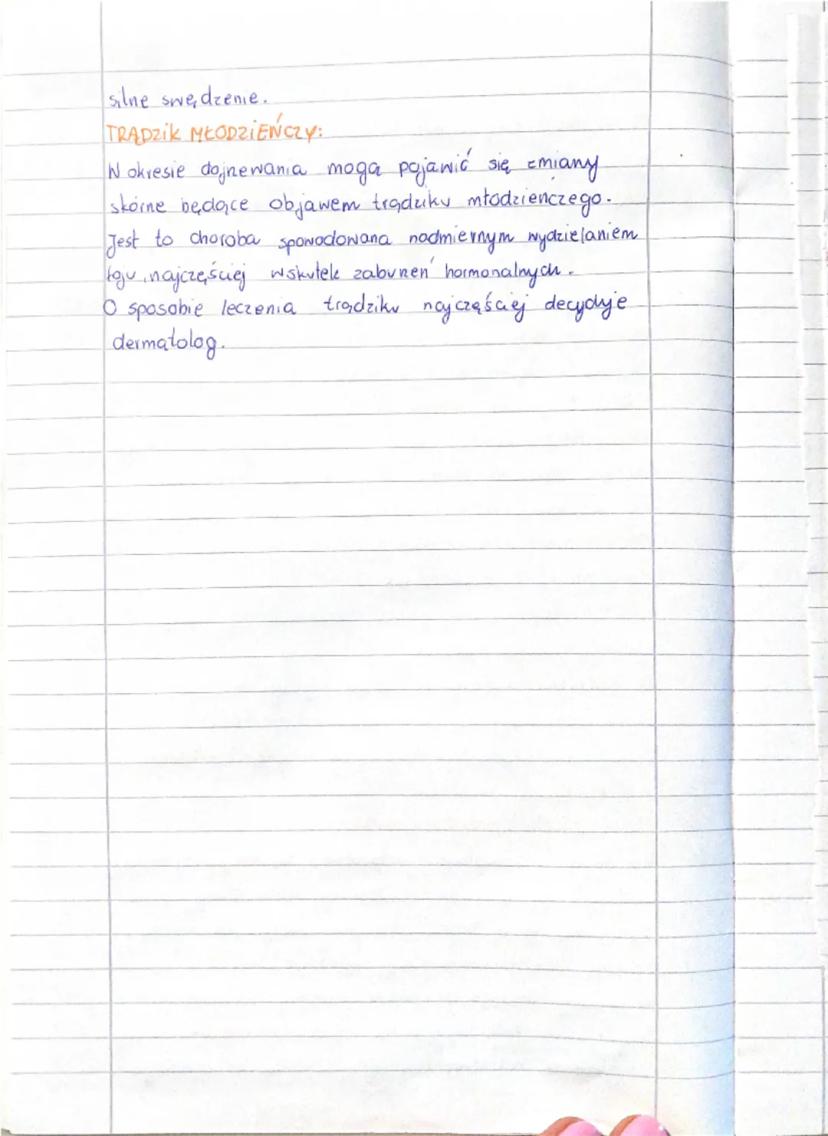 silne swędzenie.
TRĄDZIK MŁODZIEŃCZY:
W okresie dojrzewania mogą pojawić się zmiany
skórne będące objawem trądziku młodzieńczego.
Jest to choroba spowodowana nadmiernym wydzielaniem
łoju, najczęściej wskutek zaburzeń hormonalnych.
O sposobie leczenia trądziku najczęściej decyduje
dermatolog.